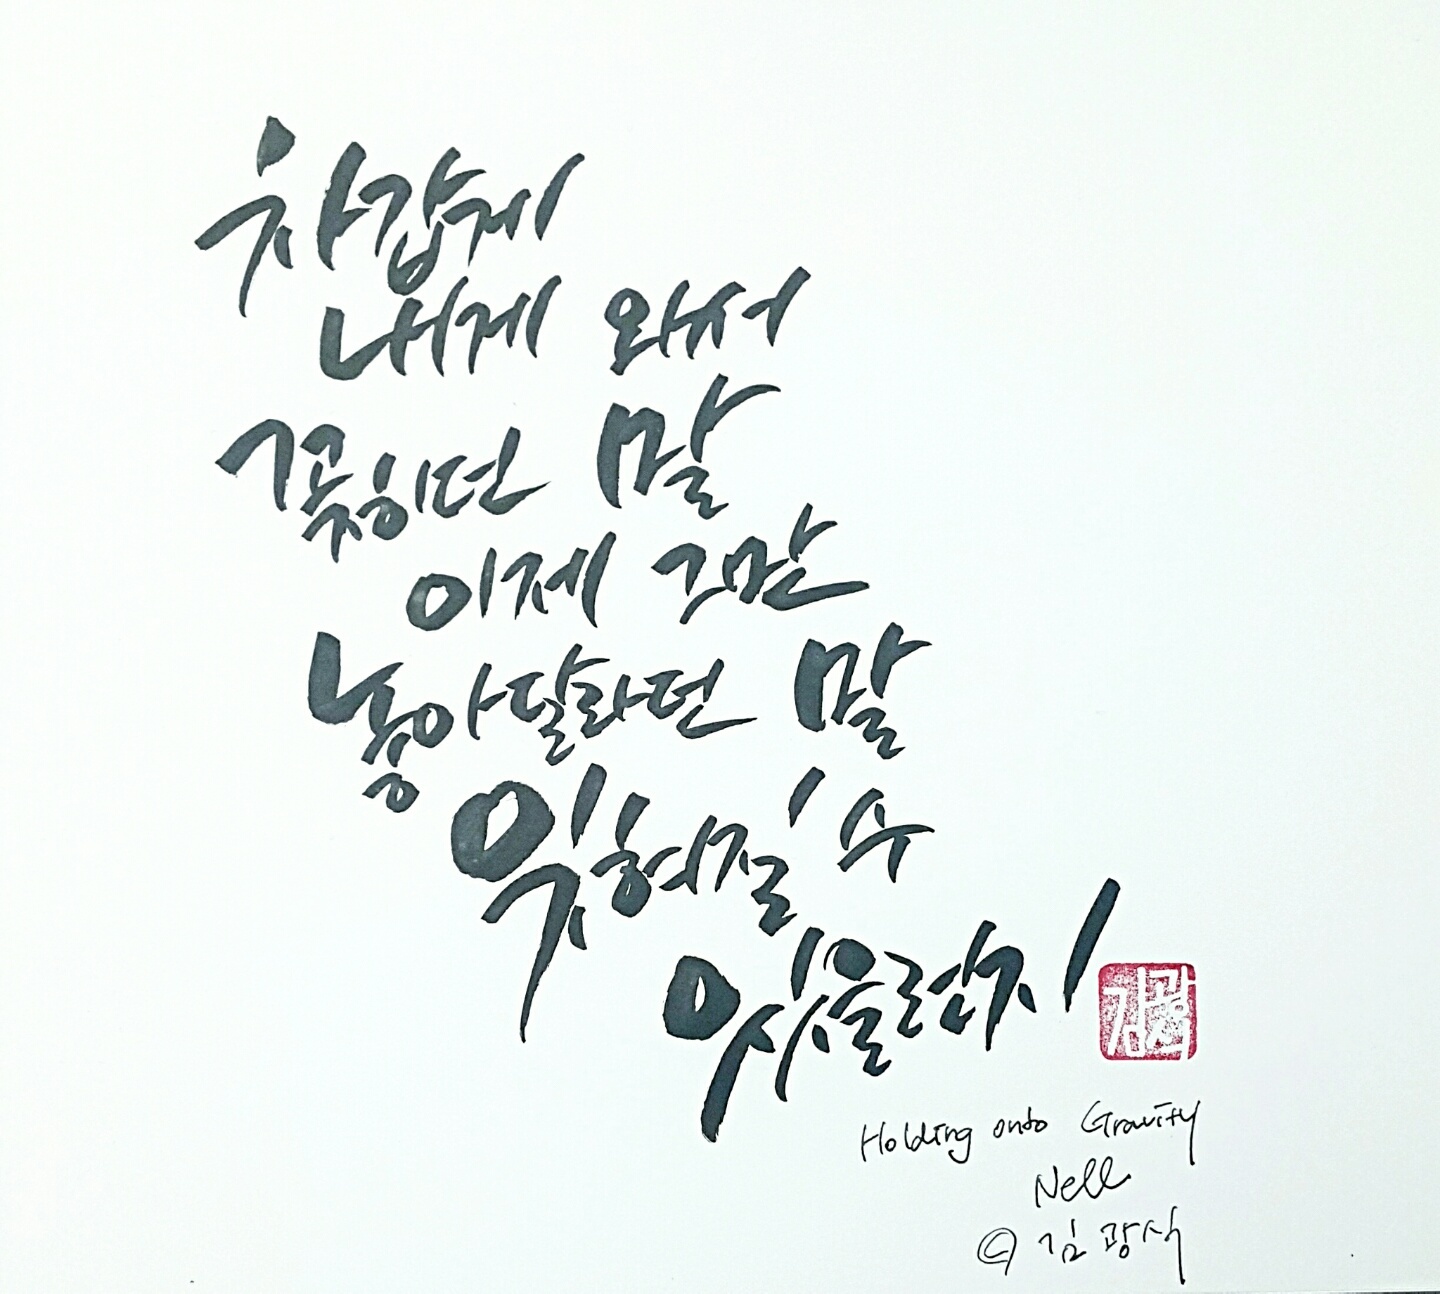 차갑게
내게 와서
꽂히던 말
이제 그만
놓아달라던 말
잊혀질 수
있을런지
김광석
Holding onto Gravity
Nell
© 김광석